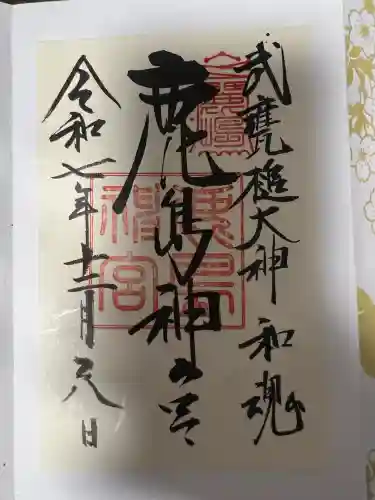 武甕槌大神 和魂
鹿島神宮
令和七年十二月二八日
鹿島神宮